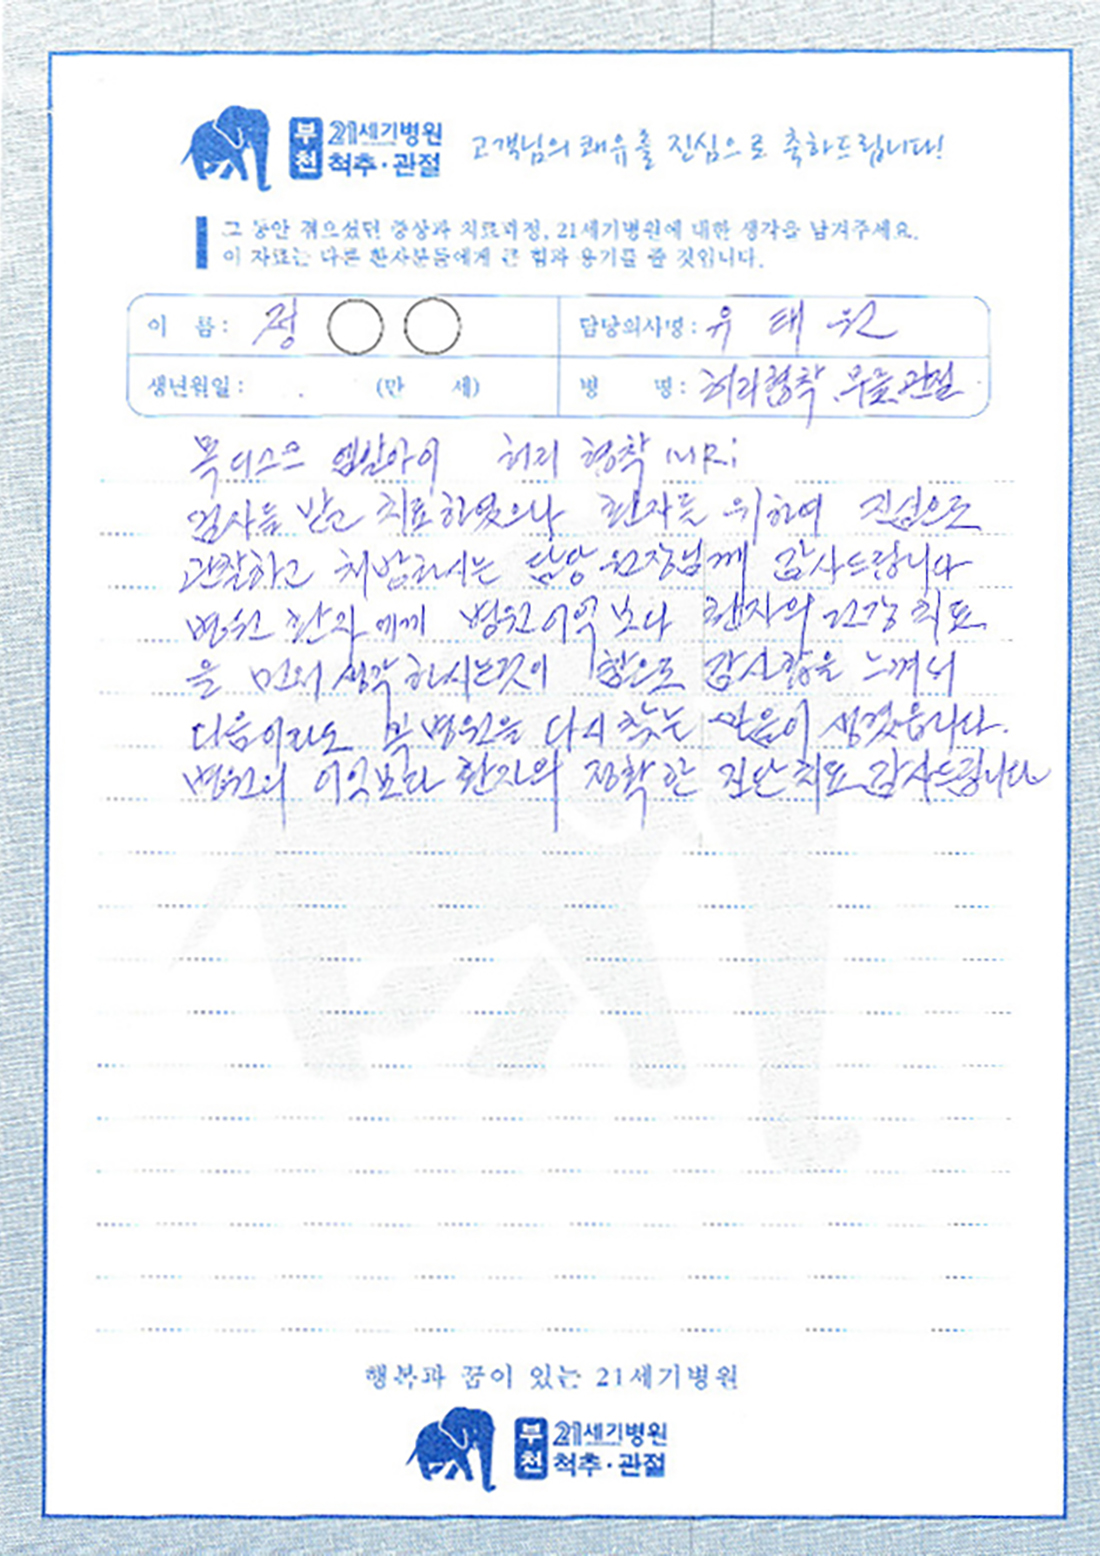 부천 21세기병원 척추·관절 고객님의 쾌유를 진심으로 축하드립니다!
그 동안 겪으셨던 증상과 치료과정, 21세기병원에 대한 생각을 남겨주세요.
이 자료는 다른 환자분들에게 큰 힘과 용기를 줄 것입니다.
이 름 : 정 담당의사명 : 유태원
생년월일 : . (만 세) 병 명 : 허리협착 무릎관절
목디스크 엠알아이 허리 협착 MRi
검사를 받고 치료하였으나 환자를 위하여 진심으로
관찰하고 처방하시는 담당 원장님께 감사드립니다
병원 환자에게 병원이익보다 환자의 건강 치료
을 먼저 생각하시는것이 참으로 감사함을 느껴서
다음이라도 꼭 병원을 다시 찾는 마음이 생겼습니다.
병원의 이익보다 환자의 정확한 진단치료 감사드립니다
행복과 꿈이 있는 21세기병원
부천 21세기병원 척추·관절